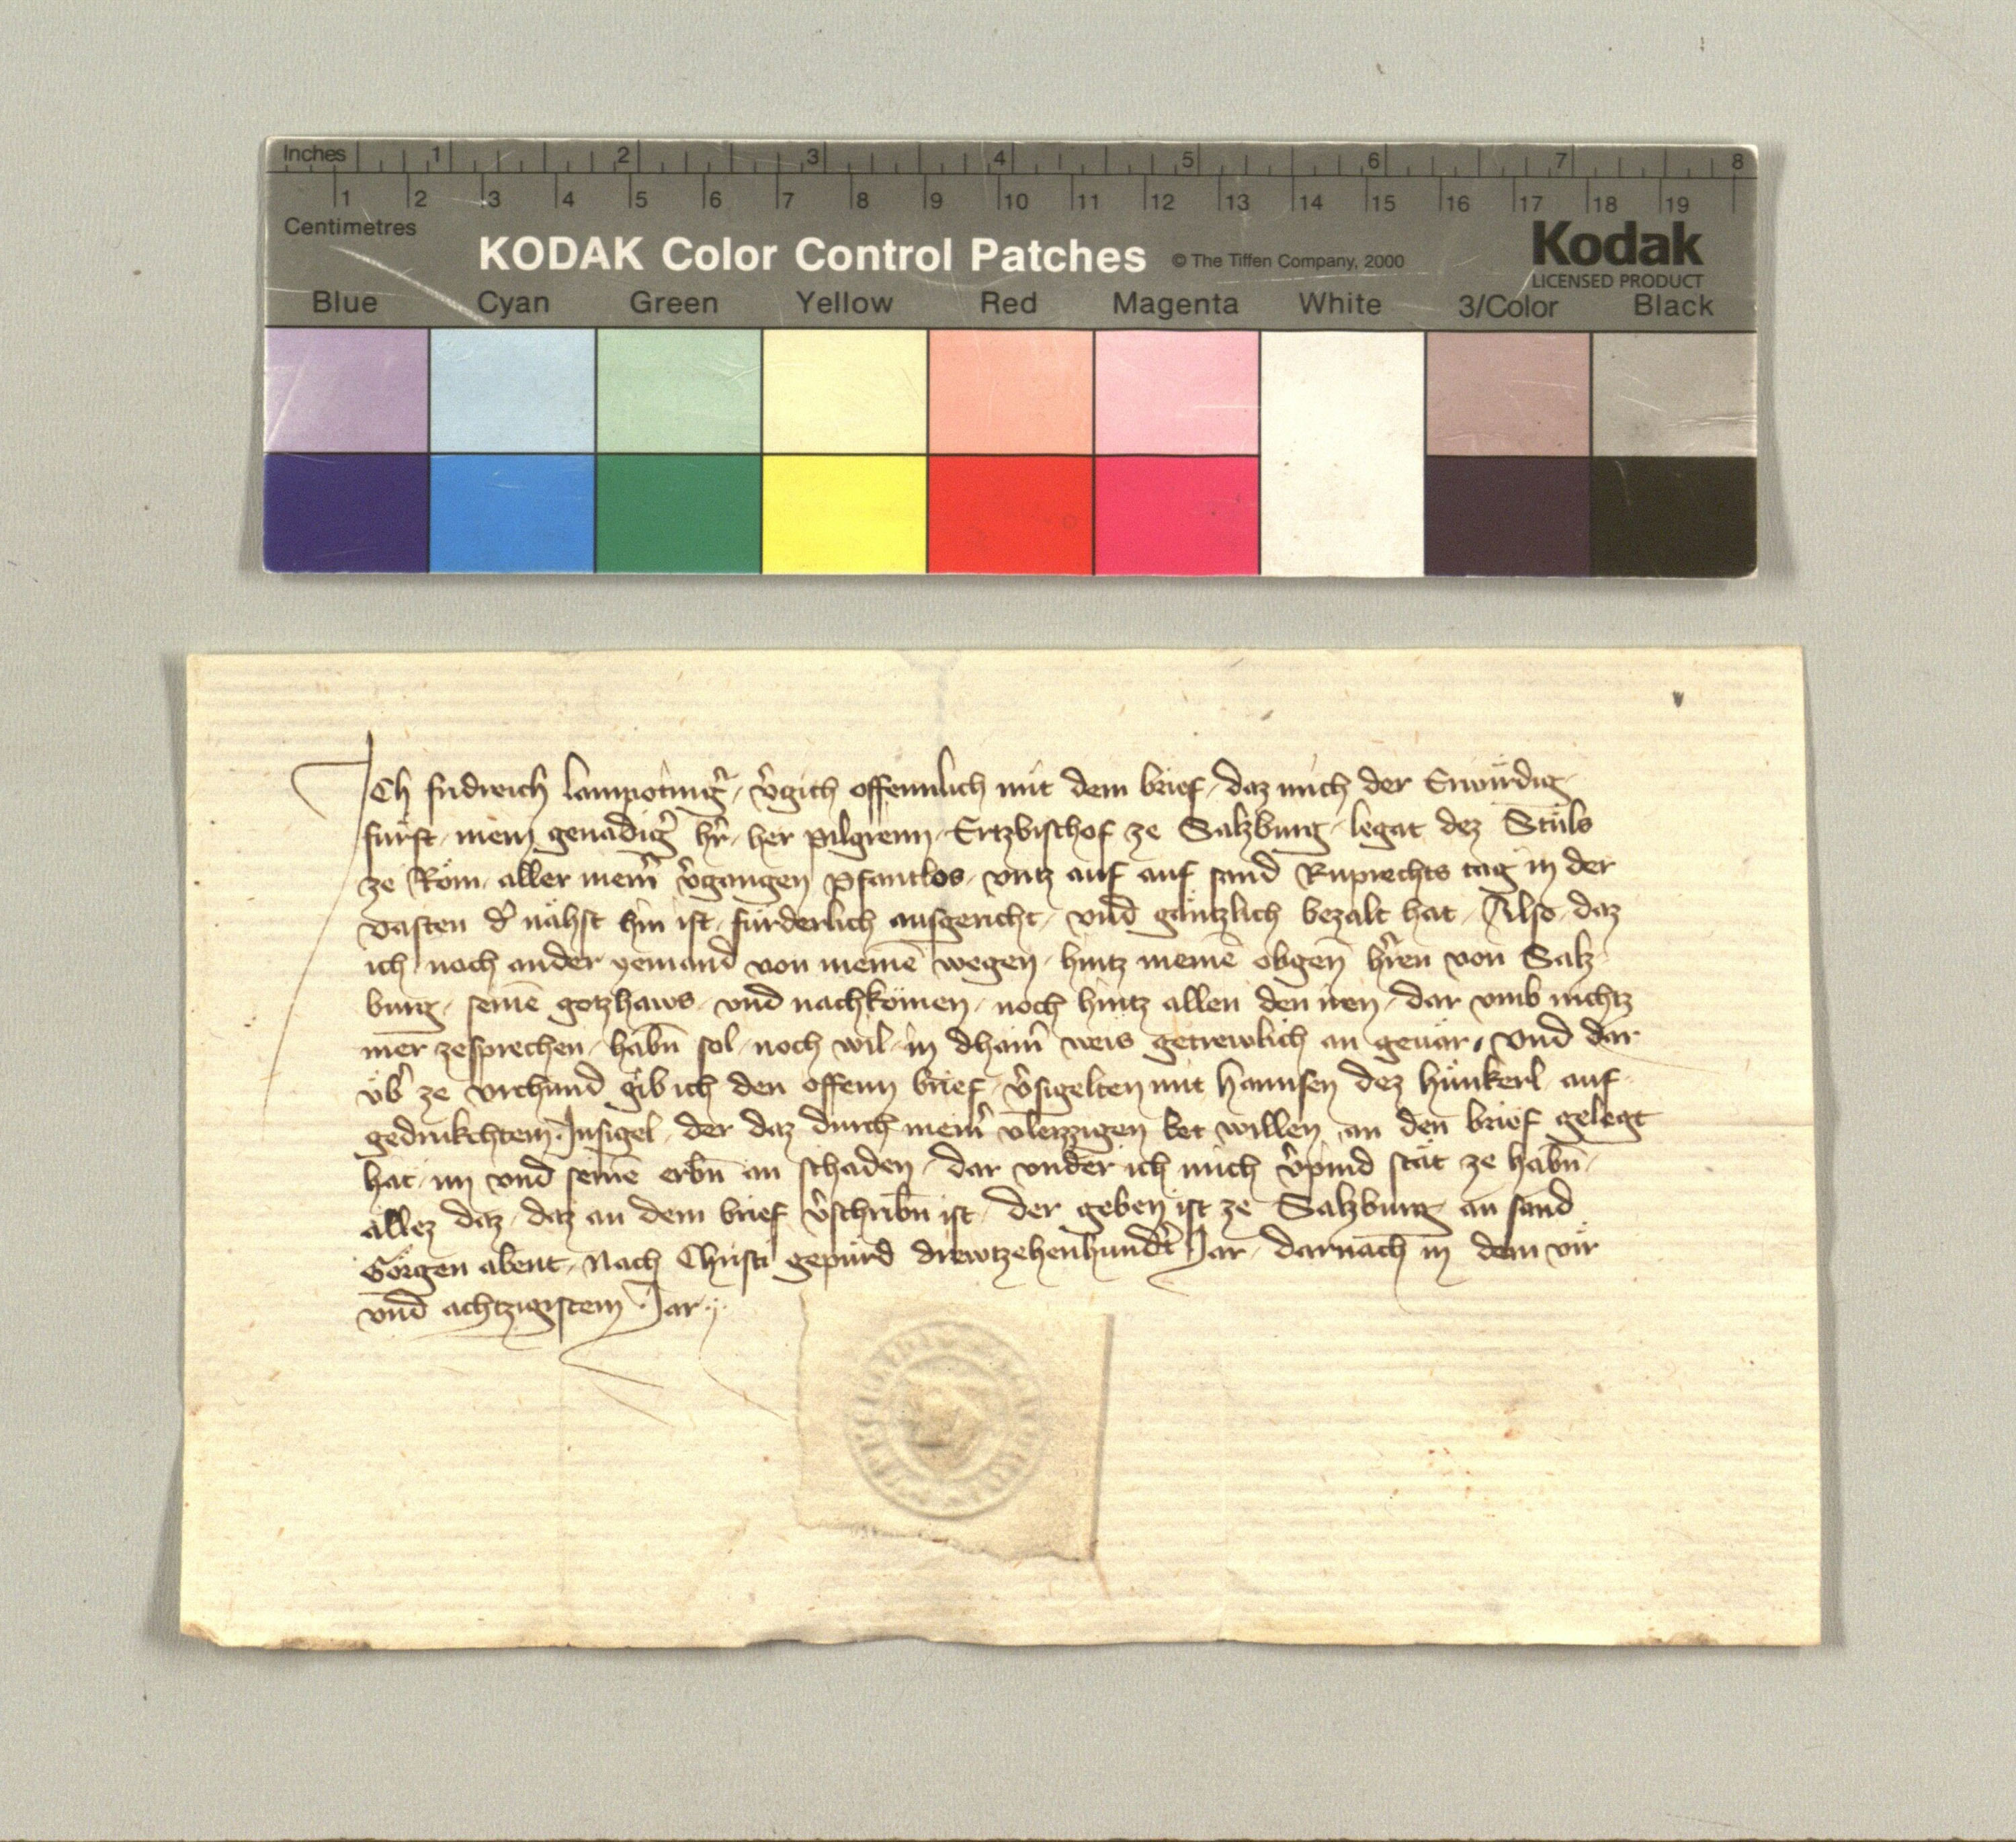 Inches 1 2 3 4 5 6 7 8
1 2 3 4 5 6 7 8 9 10 11 12 13 14 15 16 17 18 19
Centimetres
KODAK Color Control Patches © The Tiffen Company, 2000 Kodak
LICENSED PRODUCT
Blue Cyan Green Yellow Red Magenta White 3/Color Black
Ich fridreich lampotingˀ vˀgich offennlich mit dem brief daz mich der Erwirdig
fürst mein genädigˀ hˀr her pilgreim Ertzbischof ze Salzburg legat dez Stůls
ze Rom aller meinˀ vˀgangen pfantlos vntz auf auf sand Ruprechts tag in der
vasten dˀ nähst hin ist fürderlich ausgericht vnd gäntzlich bezalt hat Also daz
ich noch ander yemand von meinē wegen hintz meinē obgen̄ hˀren von Salz
burg seinē gotzhaws vnd nachkomen noch hintz allen den iren dar vmb nichtz
mer zesprechen habn̄ sol noch wil in dhainˀ weis getrewlich an geuär vnd dar
vbˀ ze vrchund gib ich den offenn brief vˀsigelten mit hannsen dez hünkerl auf
gedrukchtem Insigel der daz durch meinˀ vleizzigen bet willen an den brief gelegt
hat im vnd seinē erbn̄ an schaden dar vnder ich mich vˀpind stät ze habn̄
allez daz daz an dem brief vˀschribn̄ ist der geben ist ze Salzburg an sand
Görgen abent Nach Christi gepürd drewtzehenhundˀt Jar darnach in dem vir
vnd achtzigistem Jar